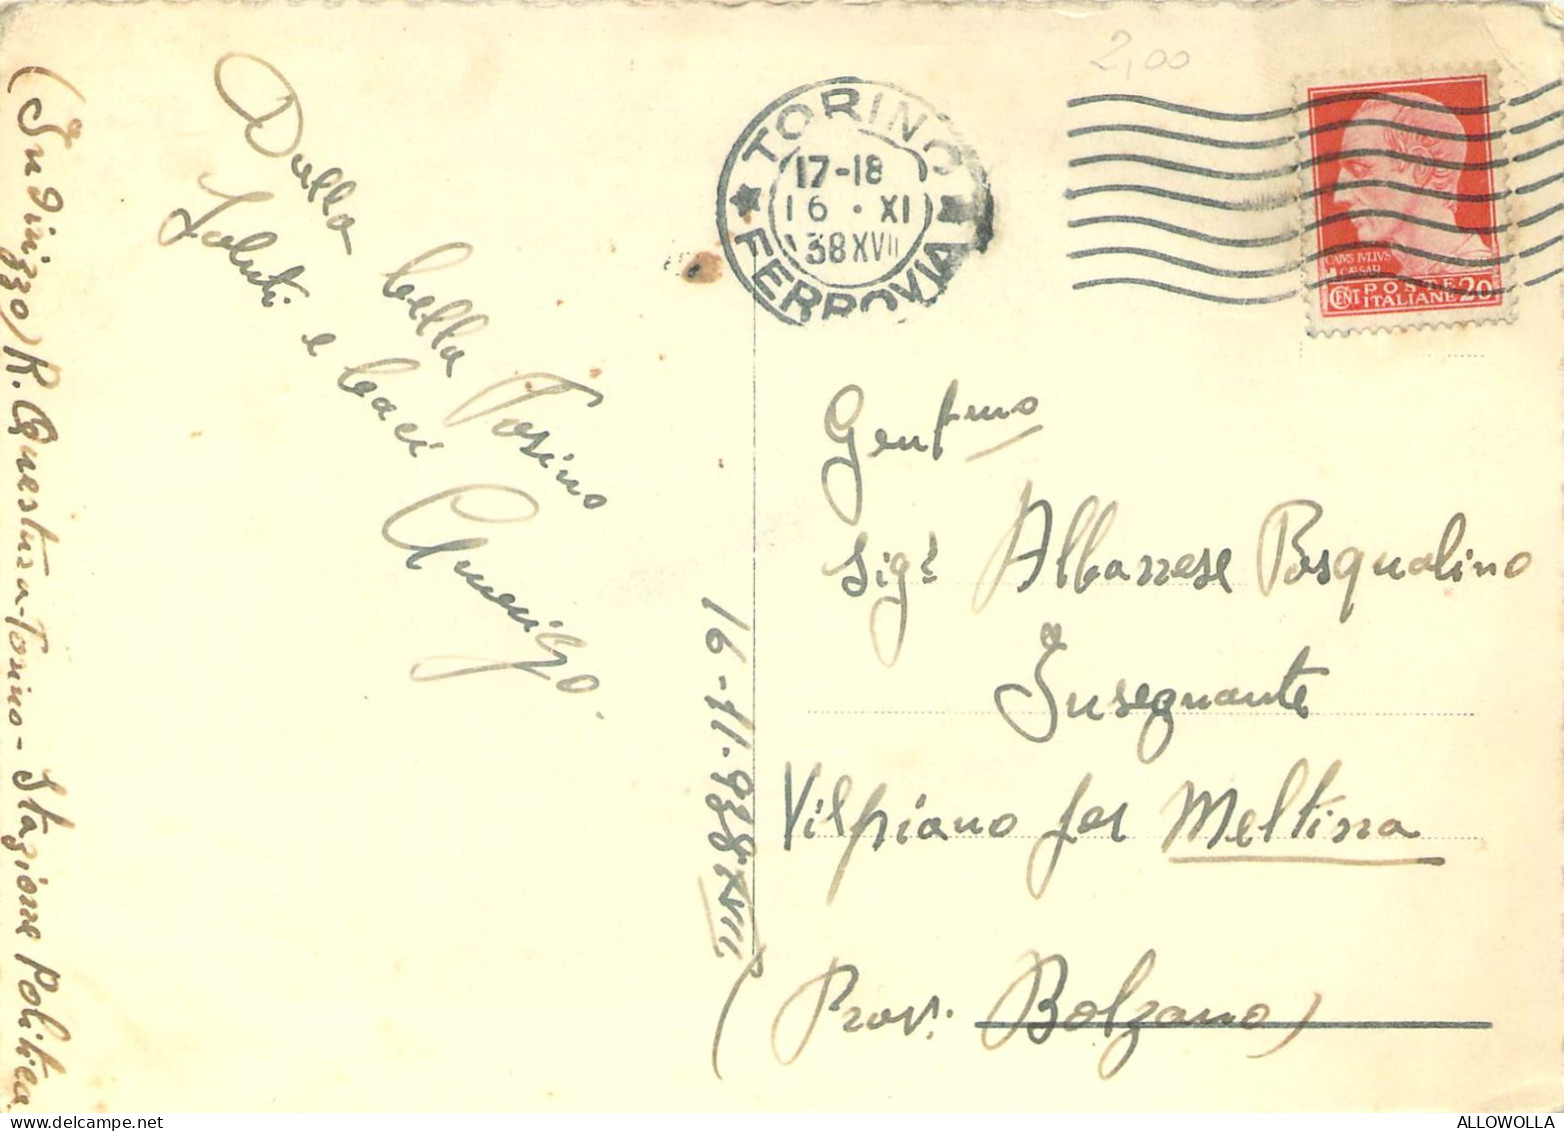 (Indirizzo) R. Questura - Torino - Stazione Politica
Dalla bella Torino
Saluti e baci
Amerigo.
16-11-938 XVII
2,00
TORINO
17-18
16 · XI
38 XVII
FERROVIA
CAIVS IVLIVS
CÆSAR
CENT POSTE 20
ITALIANE
Gentmo
Sigr Albarrese Pasqualino
Insegnante
Vilpiano per Meltina
(Prov. Bolzano)
https://www.delcampe.net
ALLOWOLLA